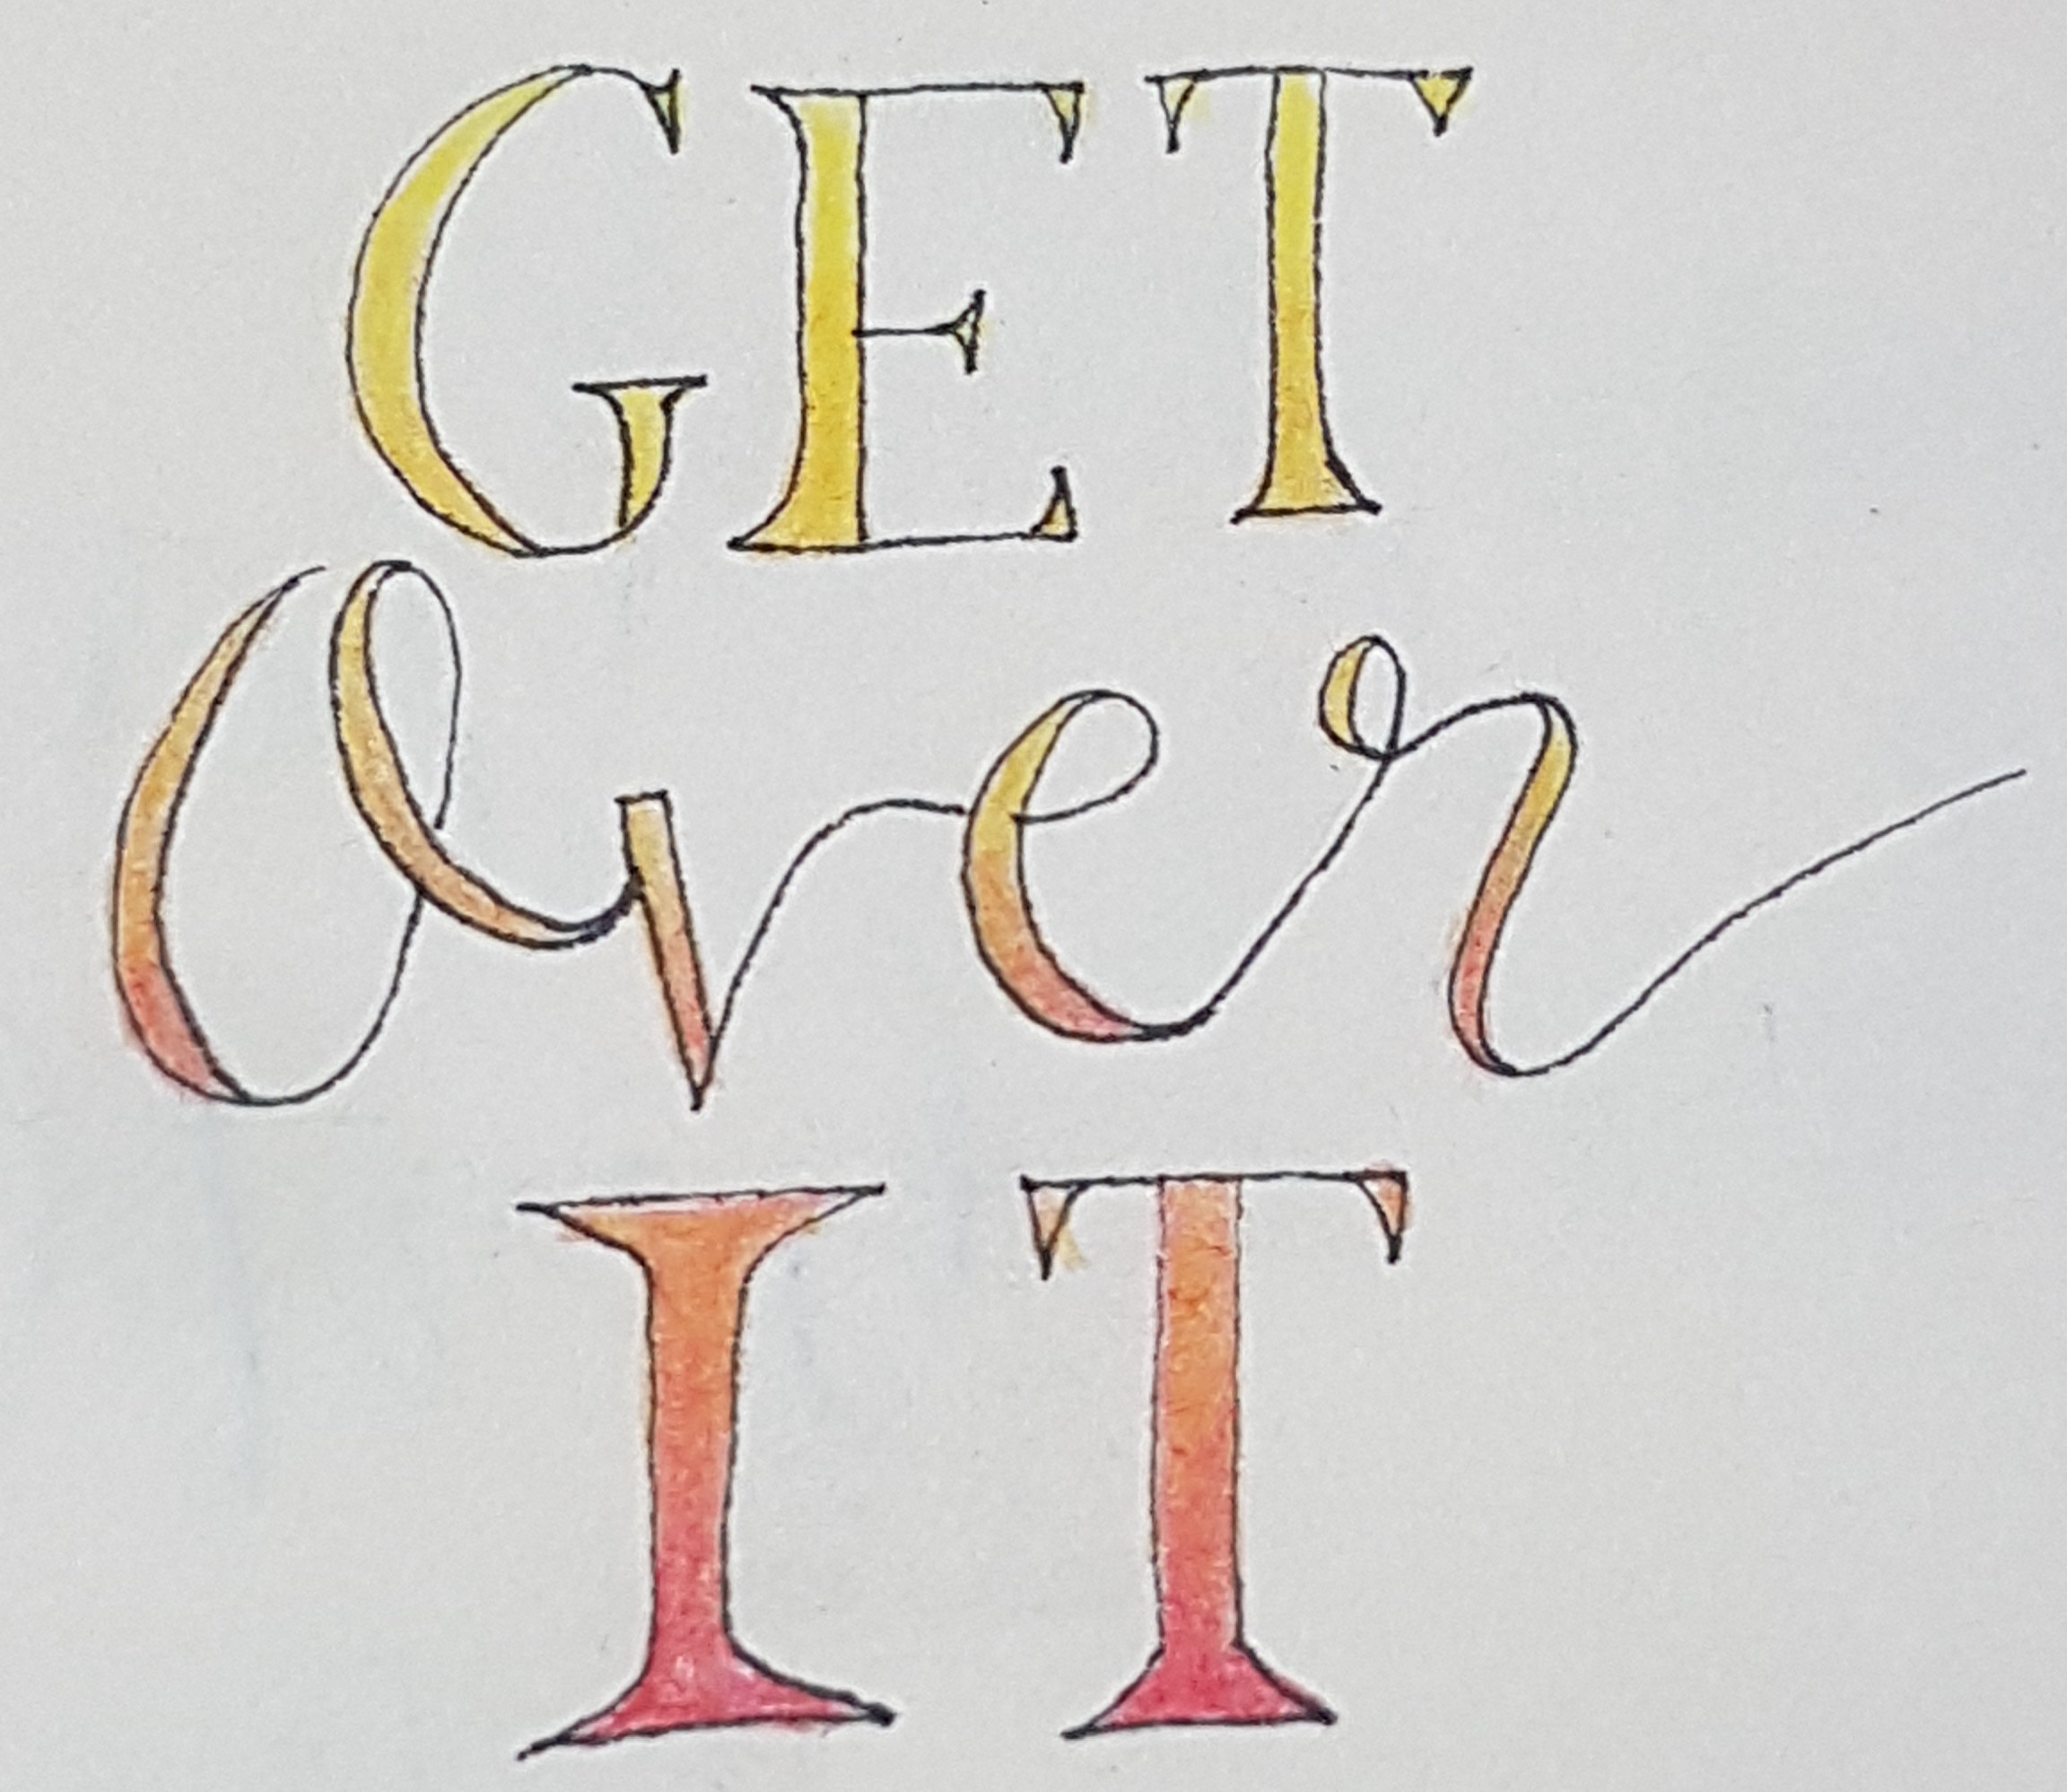 GET
Over
IT